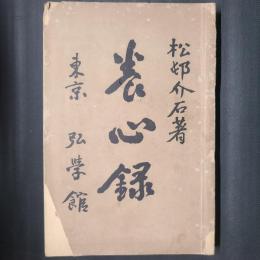 松邨介石著
養心錄
東京 弘學館